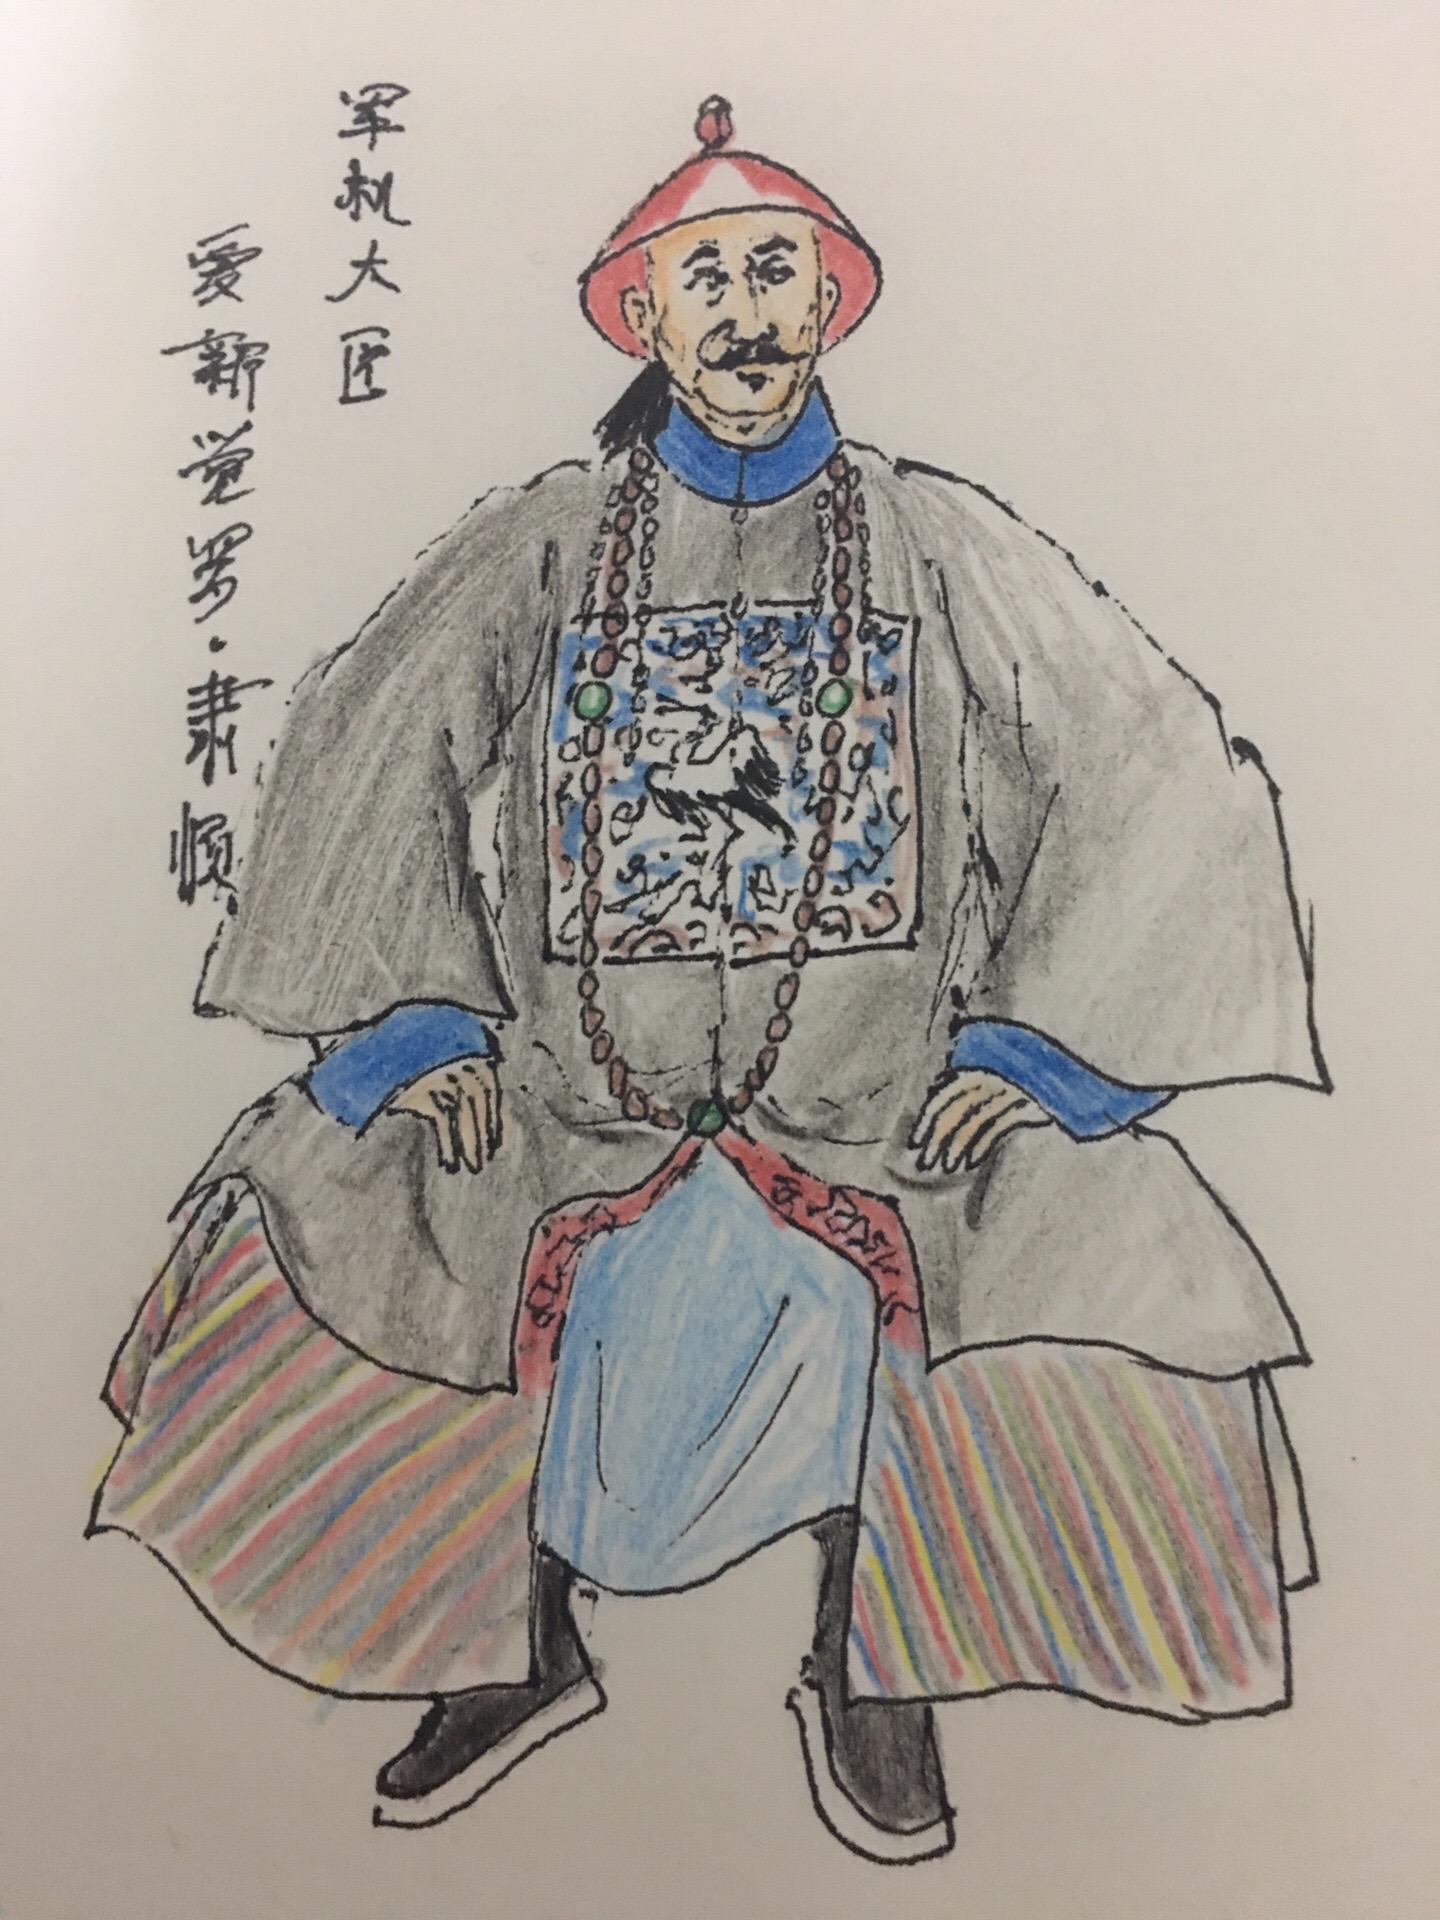 军机大臣
爱新觉罗·肃顺